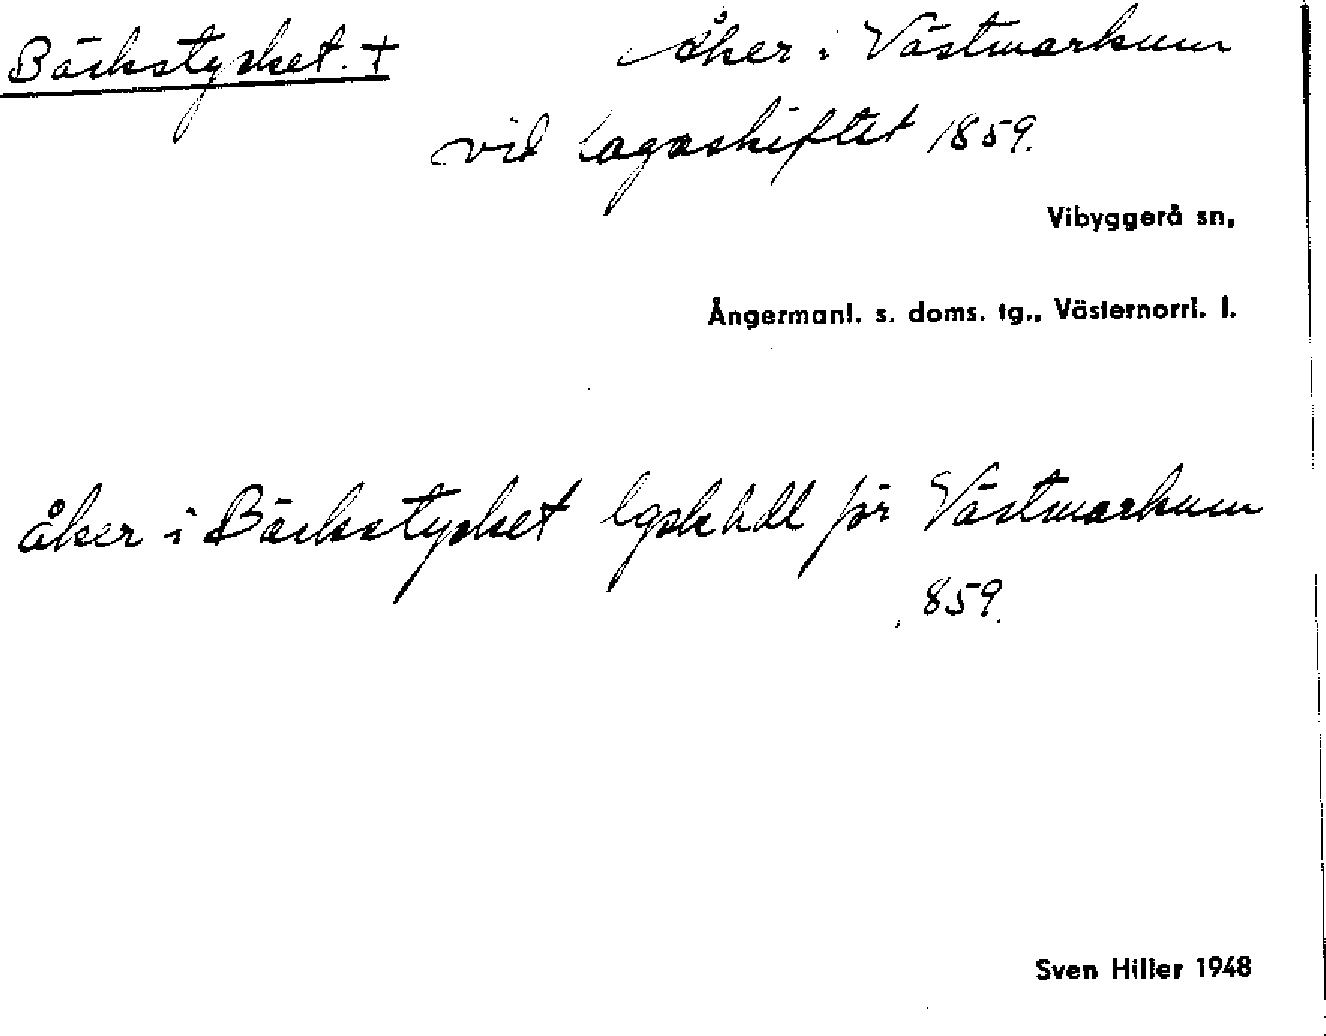 Bäckstycket. + åker i Västmarkum
vid lagaskiftet 1859.
Vibyggerå sn,
Ångermanl. s. doms. tg., Västernorrl. l.
åker i Bäckstycket lgsk hdl för Västmarkum
1859.
Sven Hiller 1948